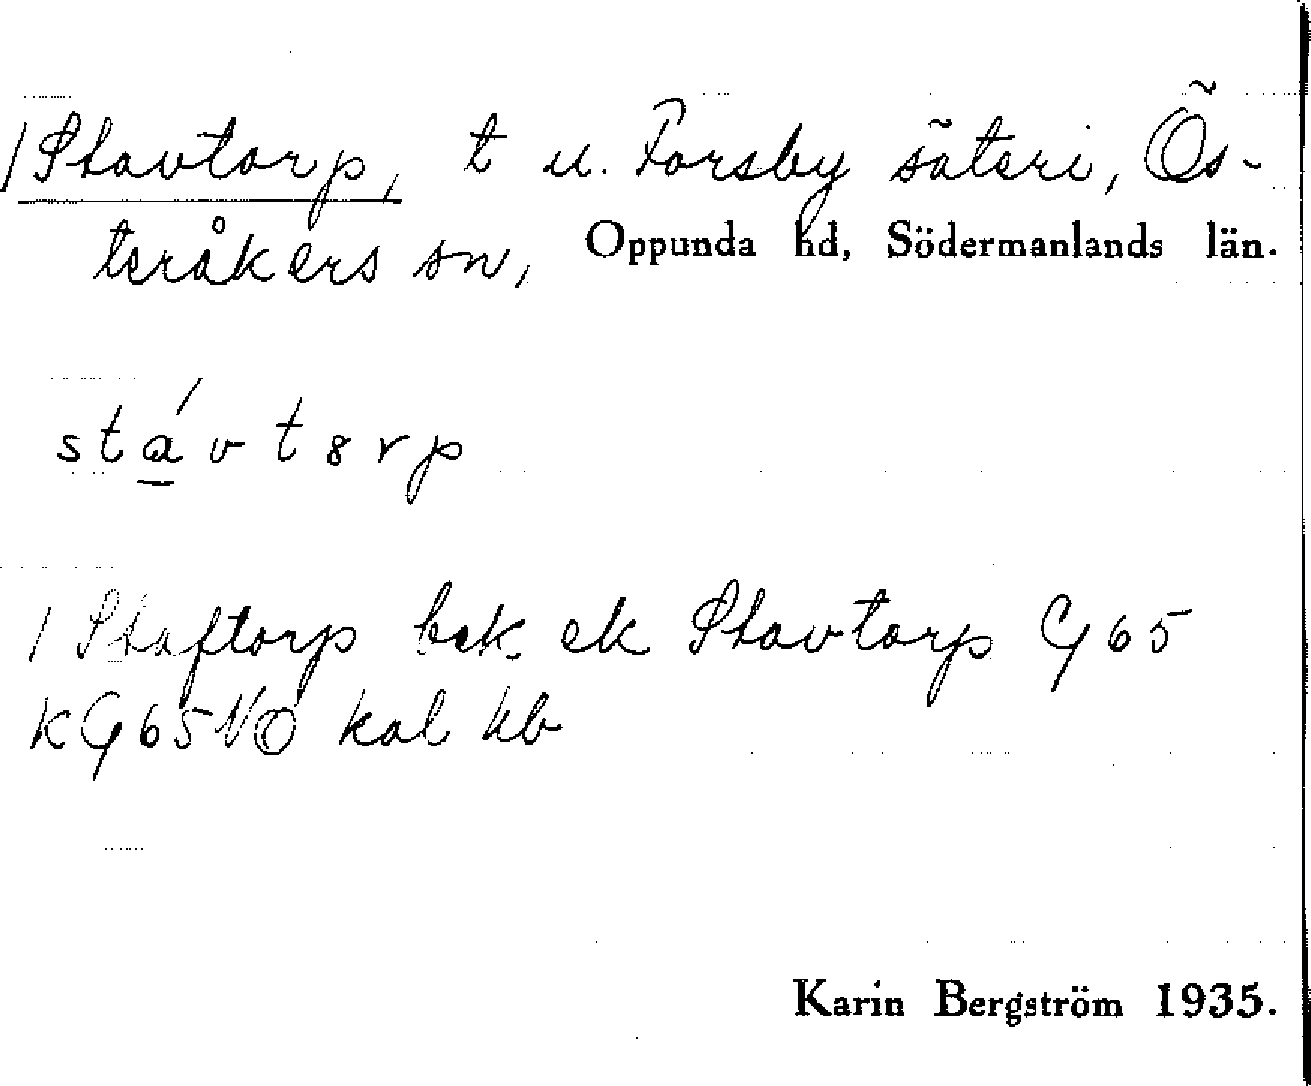 / Stavtorp, t u. Forsby säteri, Ös-
teråkers sn, Oppunda hd, Södermanlands län.
stávtȣrp
/ Staftorp bek. ek Stavtorp G 65
KG 65 NO kal hb
Karin Bergström 1935.